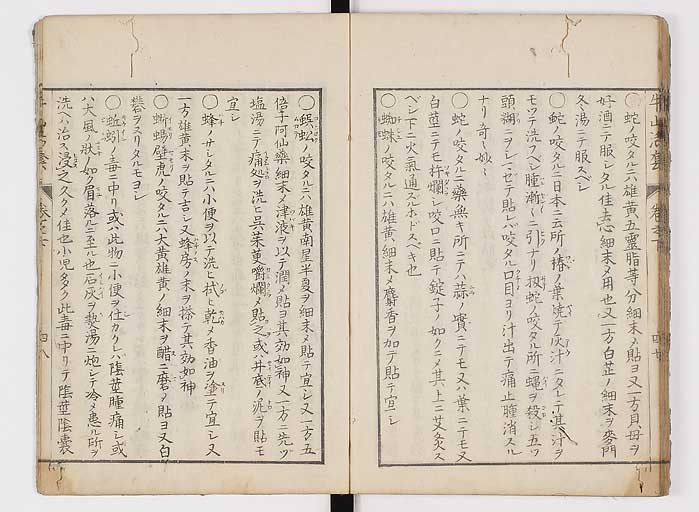 ○蛇ノ咬タルニハ雄黄五霊脂等分細末〆貼ヨ又一方貝母ヲ
好酒ニテ服シタル佳去心細末〆用也又一方白芷ノ細末ヲ麥門
冬湯ニテ服スベシ
○蛇ノ咬タルニ日本ニ云所ノ椿ノ葉焼テ灰汁ニタレテ其汁ヲ
モツテ洗フベシ腫漸〻ニ引ナリ扨蛇ノ咬タル所ニ蝿ヲ殺シ五ツ
頭糊ニヲシマゼテ貼レバ咬タル口目ヨリ汁出テ痛止腫消スル
ナリ奇〻妙〻
○蛇ノ咬タルニ藥無キ所ニテハ蒜ノ實ニテモ又ハ葉ニテモ又
白薑ニテモ杵爛シ咬口ニ貼テ錠子ノ如クニ〆其上ニ艾灸ス
ベシ下ニ火氣通スルホドスベキ也
○蜘蛛ノ咬タルニハ雄黄ノ細末〆麝香ヲ加テ貼テ宜シ
○蜈蚣ノ咬タルニハ雄黄南星半夏ヲ細末〆貼テ宜シ又一方五
倍子阿仙藥細末〆津液ヲ以テ潤〆貼ヨ其効如神又一方ニ先ヅ
塩湯ニテ痛処ヲ洗ヒ呉茱萸嚼爛〆貼之或ハ井底ノ泥ヲ貼モ
宜シ
○蜂ノサシタルニハ小便ヲ以テ洗ヒ拭ヒ乾〆香油ヲ塗テ宜シ又
一方雄黄末ヲ貼テ吉シ又蜂房ノ末ヲ搽テ其効如神
○蜥蜴壁虎ノ咬タルニハ大黄雄黄ノ細末ヲ醋ニ磨〆貼ヨ又白
礬ヲスリタルモヨシ
○蚯蚓ノ毒ニ中リ或ハ此物ニ小便ヲ仕カクレハ陰莖腫痛シ或
ハ大風ノ状ノ如ク眉落ルニ至ル也石灰ヲ熱湯ニ炮シテ冷〆患ル所ヲ
洗ヘハ治ス浸之久ク〆佳也小児多ク此毒ニ中リテ陰莖陰嚢
四八